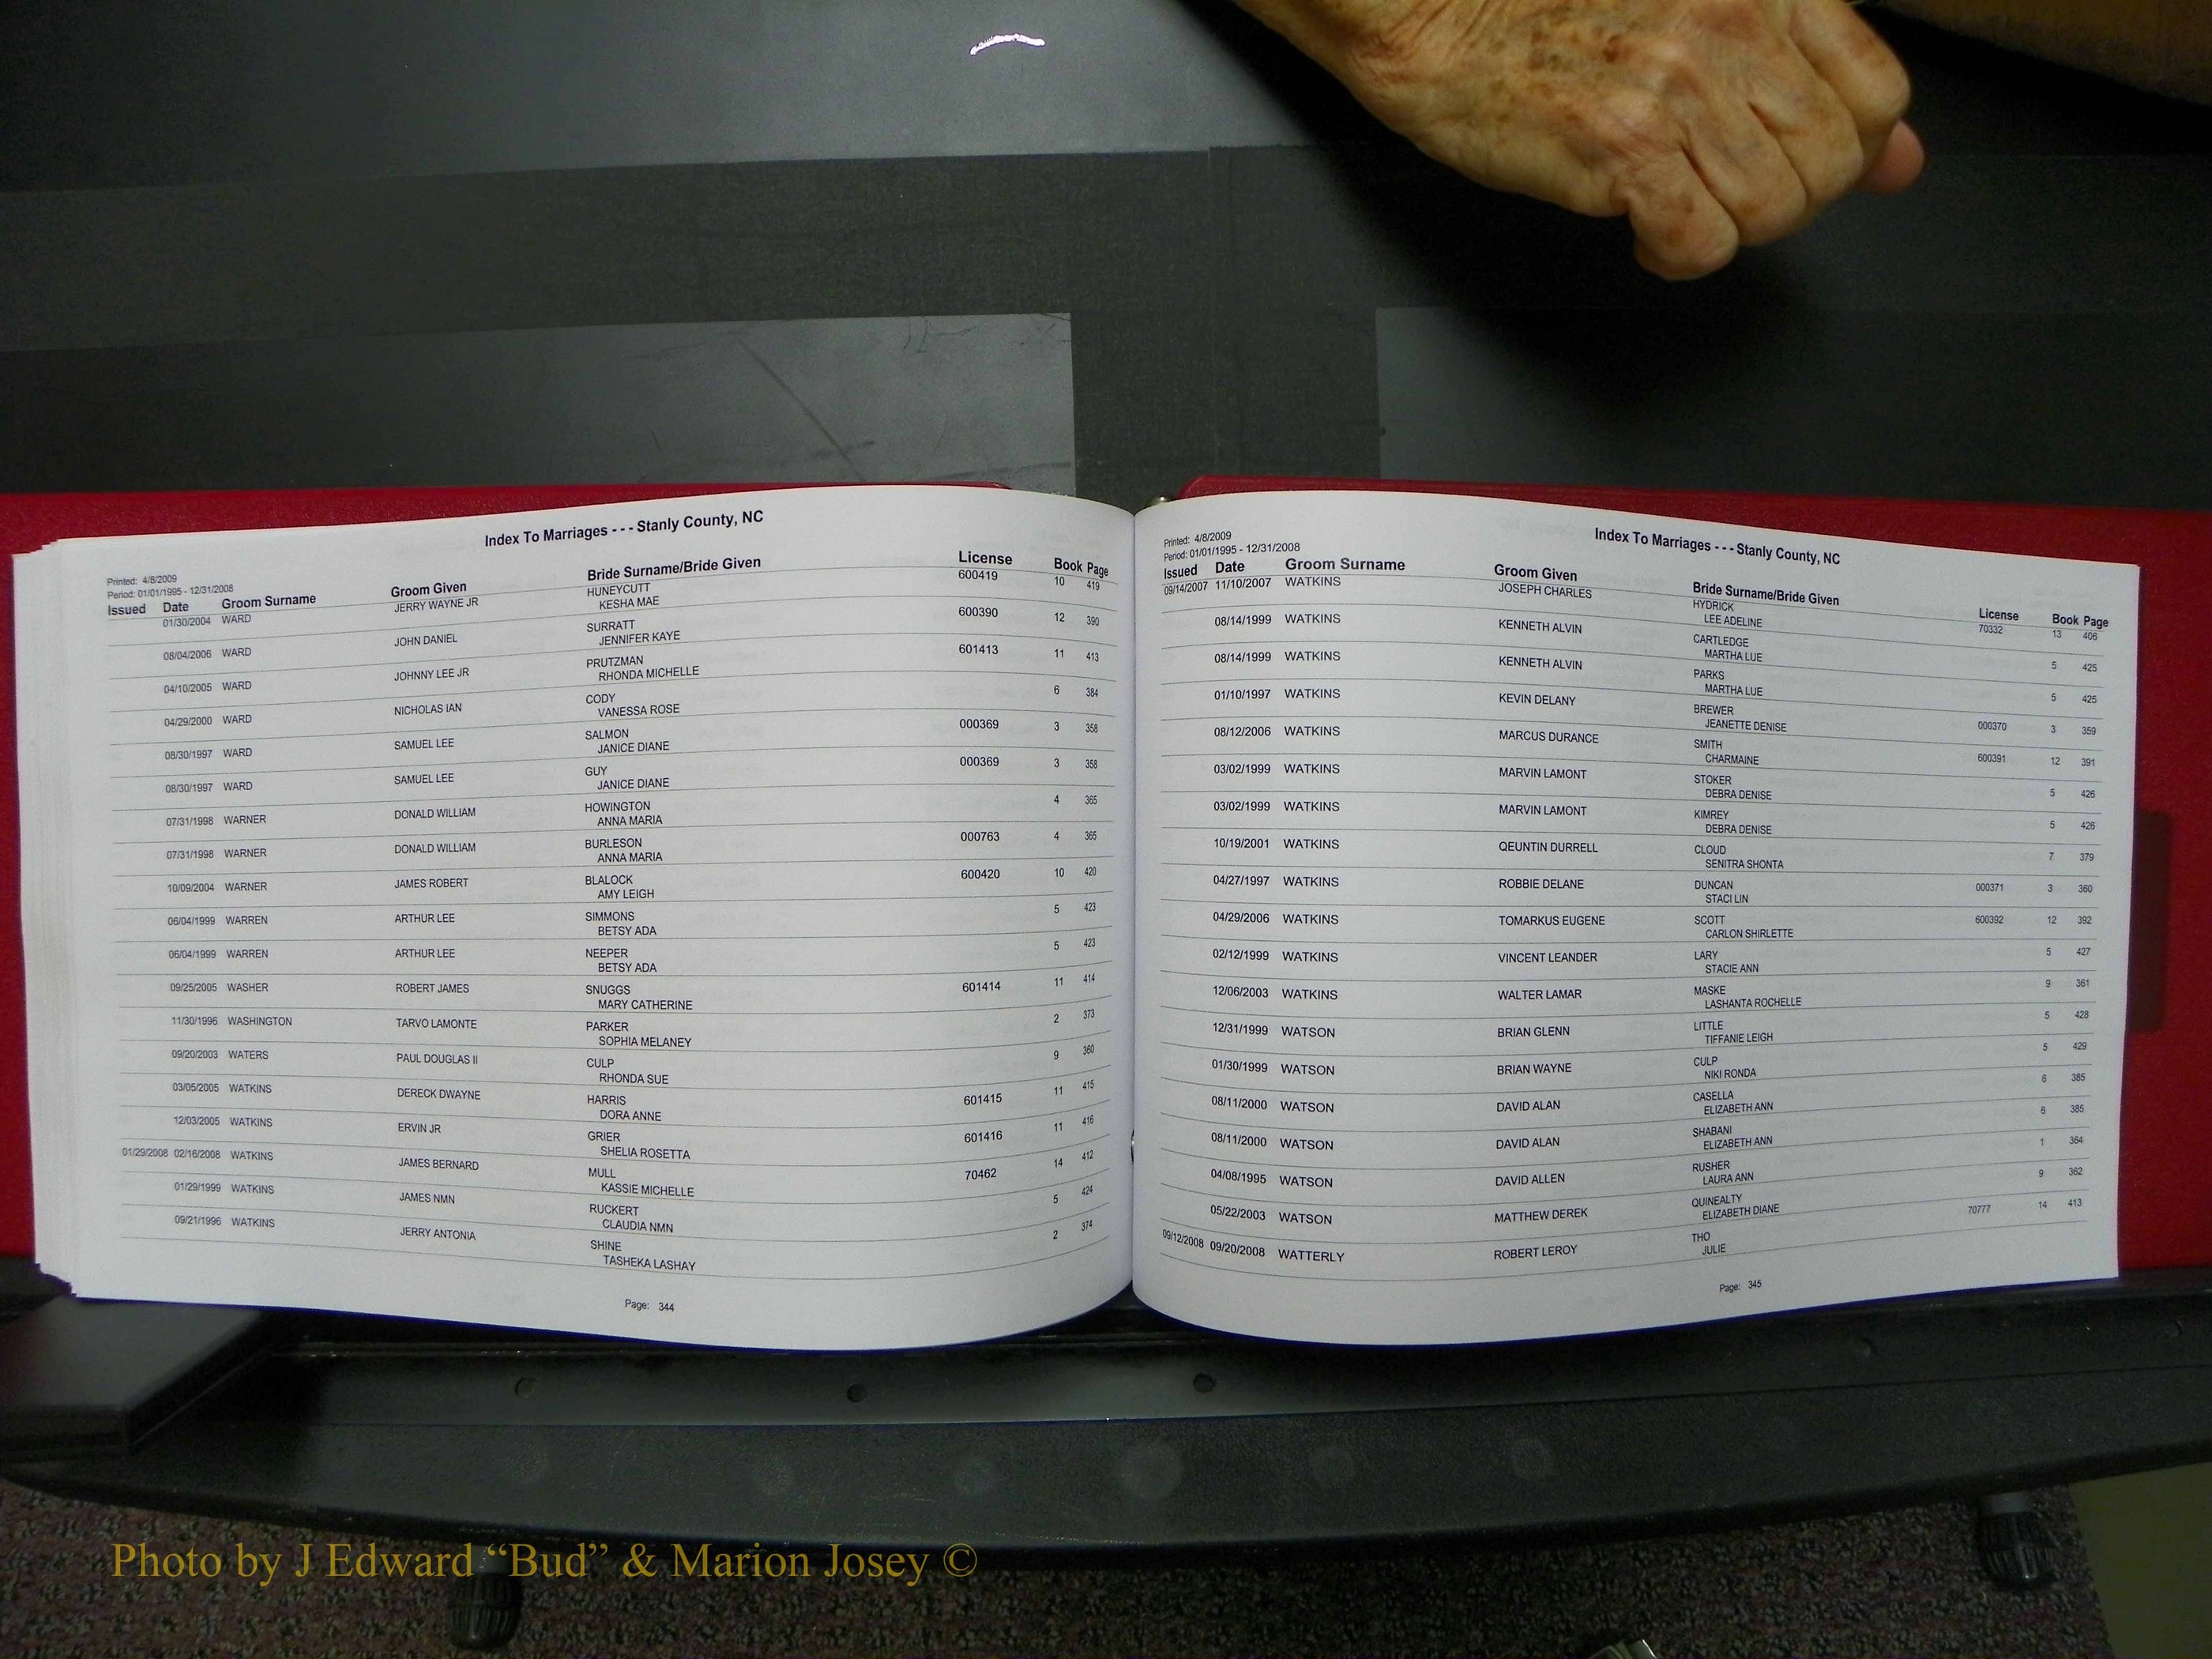 Index To Marriages - - - Stanly County, NC
Printed: 4/8/2009
Period: 01/01/1995 - 12/31/2008
Issued Date Groom Surname Groom Given Bride Surname/Bride Given License Book Page
01/30/2004 WARD JERRY WAYNE JR HUNEYCUTT 600419 10 419
KESHA MAE
08/04/2006 WARD JOHN DANIEL SURRATT 600390 12 390
JENNIFER KAYE
04/10/2005 WARD JOHNNY LEE JR PRUTZMAN 601413 11 413
RHONDA MICHELLE
04/29/2000 WARD NICHOLAS IAN CODY 6 384
VANESSA ROSE
08/30/1997 WARD SAMUEL LEE SALMON 000369 3 358
JANICE DIANE
08/30/1997 WARD SAMUEL LEE GUY 000369 3 358
JANICE DIANE
07/31/1998 WARNER DONALD WILLIAM HOWINGTON 4 365
ANNA MARIA
07/31/1998 WARNER DONALD WILLIAM BURLESON 000763 4 365
ANNA MARIA
10/09/2004 WARNER JAMES ROBERT BLALOCK 600420 10 420
AMY LEIGH
06/04/1999 WARREN ARTHUR LEE SIMMONS 5 423
BETSY ADA
06/04/1999 WARREN ARTHUR LEE NEEPER 5 423
BETSY ADA
09/25/2005 WASHER ROBERT JAMES SNUGGS 601414 11 414
MARY CATHERINE
11/30/1996 WASHINGTON TARVO LAMONTE PARKER 2 373
SOPHIA MELANEY
09/20/2003 WATERS PAUL DOUGLAS II CULP 9 360
RHONDA SUE
03/05/2005 WATKINS DERECK DWAYNE HARRIS 601415 11 415
DORA ANNE
12/03/2005 WATKINS ERVIN JR GRIER 601416 11 416
SHELIA ROSETTA
01/29/2008 02/16/2008 WATKINS JAMES BERNARD MULL 70462 14 412
KASSIE MICHELLE
01/29/1999 WATKINS JAMES NMN RUCKERT 5 424
CLAUDIA NMN
09/21/1996 WATKINS JERRY ANTONIA SHINE 2 374
TASHEKA LASHAY
Page: 344
Index To Marriages - - - Stanly County, NC
Printed: 4/8/2009
Period: 01/01/1995 - 12/31/2008
Issued Date Groom Surname Groom Given Bride Surname/Bride Given License Book Page
09/14/2007 11/10/2007 WATKINS JOSEPH CHARLES HYDRICK 70332 13 406
LEE ADELINE
08/14/1999 WATKINS KENNETH ALVIN CARTLEDGE 5 425
MARTHA LUE
08/14/1999 WATKINS KENNETH ALVIN PARKS 5 425
MARTHA LUE
01/10/1997 WATKINS KEVIN DELANY BREWER 000370 3 359
JEANETTE DENISE
08/12/2006 WATKINS MARCUS DURANCE SMITH 600391 12 391
CHARMAINE
03/02/1999 WATKINS MARVIN LAMONT STOKER 5 426
DEBRA DENISE
03/02/1999 WATKINS MARVIN LAMONT KIMREY 5 426
DEBRA DENISE
10/19/2001 WATKINS QEUNTIN DURRELL CLOUD 7 379
SENITRA SHONTA
04/27/1997 WATKINS ROBBIE DELANE DUNCAN 000371 3 360
STACI LIN
04/29/2006 WATKINS TOMARKUS EUGENE SCOTT 600392 12 392
CARLON SHIRLETTE
02/12/1999 WATKINS VINCENT LEANDER LARY 5 427
STACIE ANN
12/06/2003 WATKINS WALTER LAMAR MASKE 9 361
LASHANTA ROCHELLE
12/31/1999 WATSON BRIAN GLENN LITTLE 5 428
TIFFANIE LEIGH
01/30/1999 WATSON BRIAN WAYNE CULP 5 429
NIKI RONDA
08/11/2000 WATSON DAVID ALAN CASELLA 6 385
ELIZABETH ANN
08/11/2000 WATSON DAVID ALAN SHABANI 6 385
ELIZABETH ANN
04/08/1995 WATSON DAVID ALLEN RUSHER 1 364
LAURA ANN
05/22/2003 WATSON MATTHEW DEREK QUINEALTY 9 362
ELIZABETH DIANE
09/12/2008 09/20/2008 WATTERLY ROBERT LEROY THO 70777 14 413
JULIE
Page: 345
Photo by J Edward “Bud” & Marion Josey ©